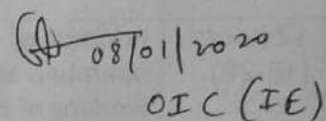 08/01/2020
OIC (IE)